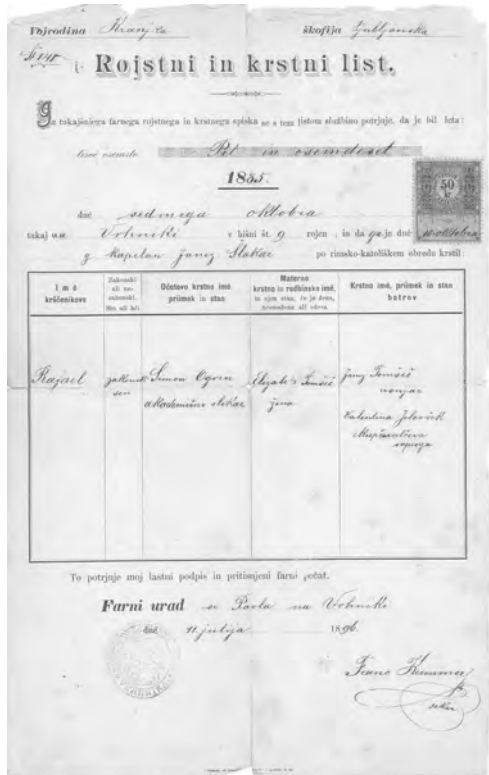 Vojvodina Kranjska škofija Ljubljanska
Rojstni in krstni list.
Iz takajšnjega farnega rojstnega in krstnega spiska se s tem listom službino potrjuje, da je bil leta:
tisoč osemsto Pet in osemdeset
1885.
dné sedmega oktobra
takaj na Vrhniki v hišni št. 9 rojen, in da ga je dné 10 oktobra
g. kapelan Janez Slakar po rimsko-katoliškem obredu krstil:
Imé krščenikovo
Zakonski ali ne-zakonski. Sin ali hči
Očetovo krstno imé priimek in stan
Materno krstno in rodbinsko imé, in njen stan, če je žena,
Krstno imé, priimek in stan botrov
Rajael
zakonski sin
Simon Ogrin
akademični slikar
Elizabeta Tomšič
žena
Janez Tomšič
Valentina Jelovšek
soproga
To potrjuje moj lastni podpis in pritisnjeni farni pečat.
Farni urad sv Pavla na Vrhniki
dné 11. julija 1896.
50